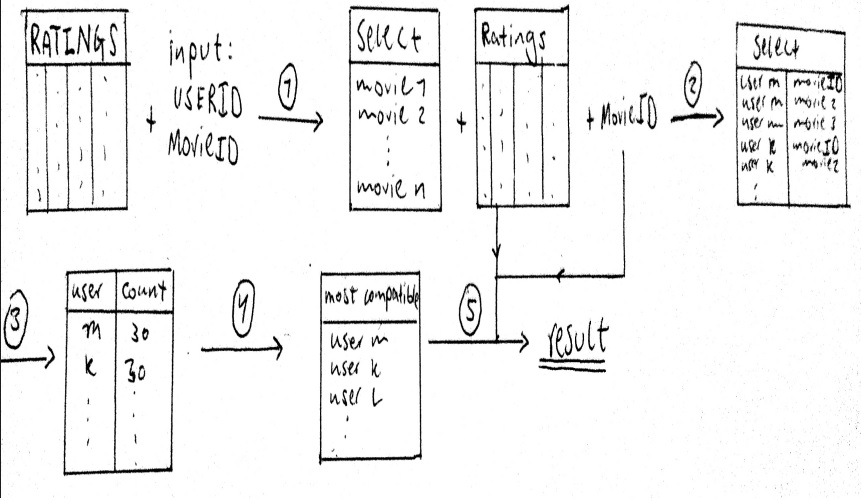 RATINGS
input:
USERID
MovieID
+
1
Select
movie 1
movie 2
movie n
+
Ratings
+ MovieID
2
Select
user m movieID
user m movie 2
user m movie 3
user k movieID
user k movie 2
3
user count
m 30
k 30
4
most compatible
user m
user k
user L
5
result